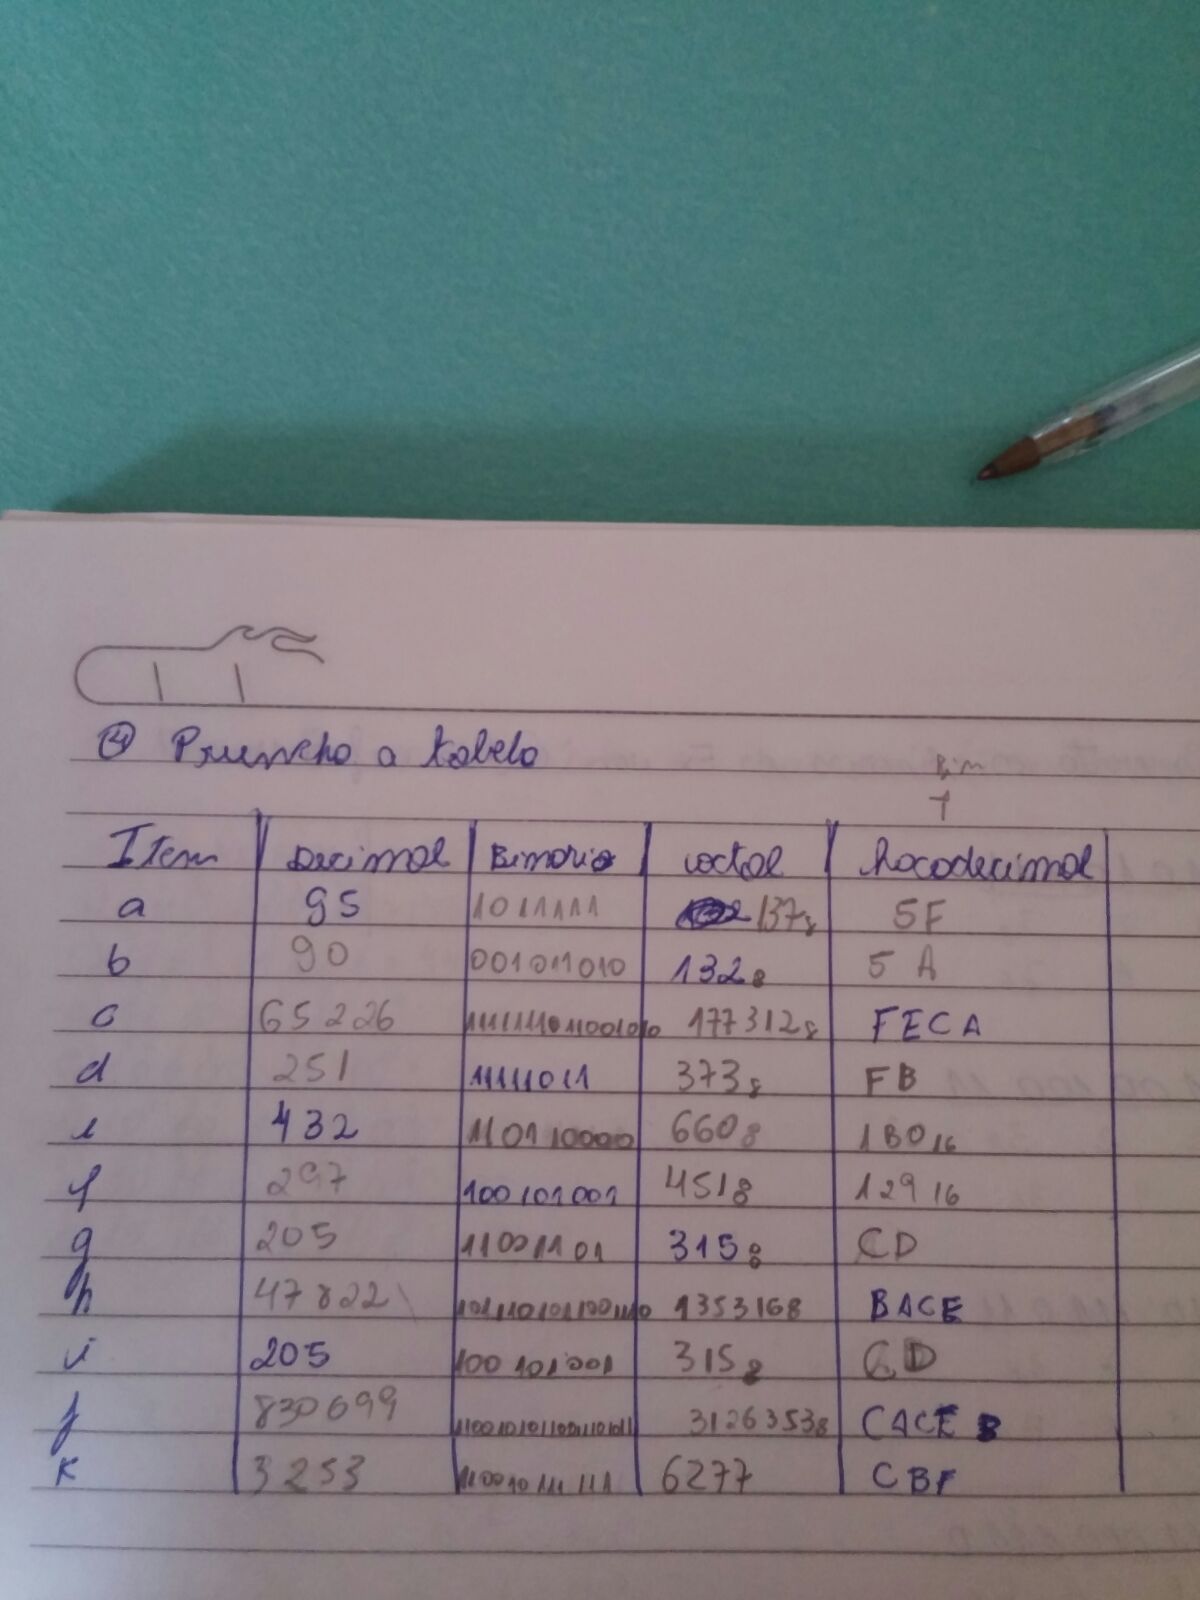 ④ Preencha a tabela
Bin
Item Decimal Binario octal hacadecimal
a 95 1011111 137₈ 5F
b 90 001011010 132₈ 5 A
c 65226 1111111011001010 177312₈ FECA
d 251 11111011 373₈ FB
e 432 110110000 660₈ 1B0₁₆
f 297 100101001 451₈ 129₁₆
g 205 11001101 315₈ CD
h 47822 1011101011001110 135316₈ BACE
i 205 100101001 315₈ CD
j 830699 11001010110011101011 3126353₈ CACEB
K 3253 110010111111 6277 CBF